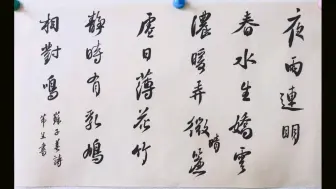 夜雨連明
春水生嬌雲
濃暖弄微晴簾
虛日薄花竹
靜時有乳鳩
相對鳴
蘇子美詩
書